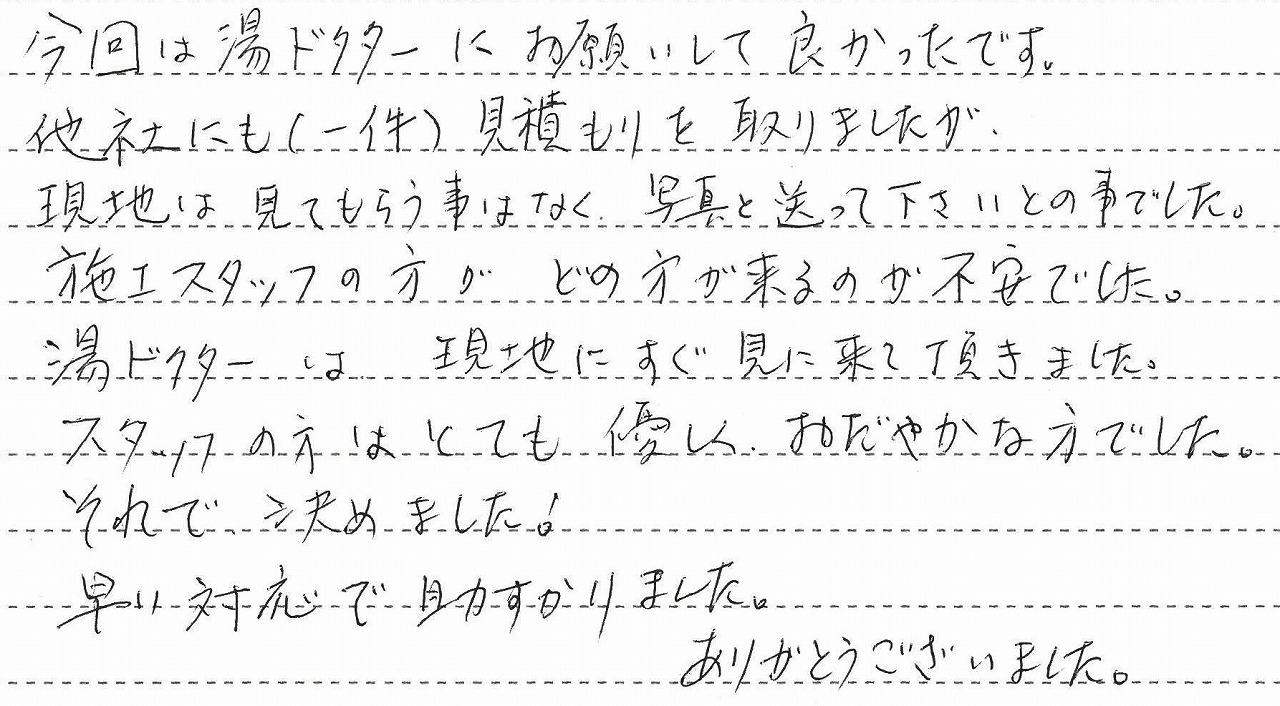 今回は湯ドクターにお願いして良かったです。
他社にも(一件)見積もりを取りましたが、
現地は見てもらう事はなく、写真と送って下さいとの事でした。
施工スタッフの方がどの方が来るのか不安でした。
湯ドクターは現地にすぐ見に来て頂きました。
スタッフの方はとても優しく、おだやかな方でした。
それで、決めました!
早い対応で助すかりました。
ありがとうございました。